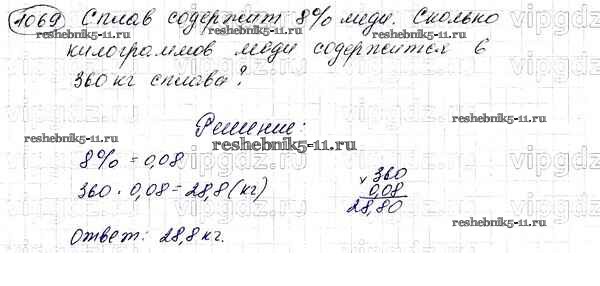 1069 Сплав содержит 8% меди. Сколько
килограммов меди содержится в
360 кг сплава?
Решение:
8% = 0,08
360 · 0,08 = 28,8 (кг)
× 360
0,08
28,80
Ответ: 28,8 кг.
vipgdz.ru
reshebnik5-11.ru
reshebnik5-11.ru
reshebnik5-11.ru
reshebnik5-11.ru
reshebnik5-11.ru
reshebnik5-11.ru